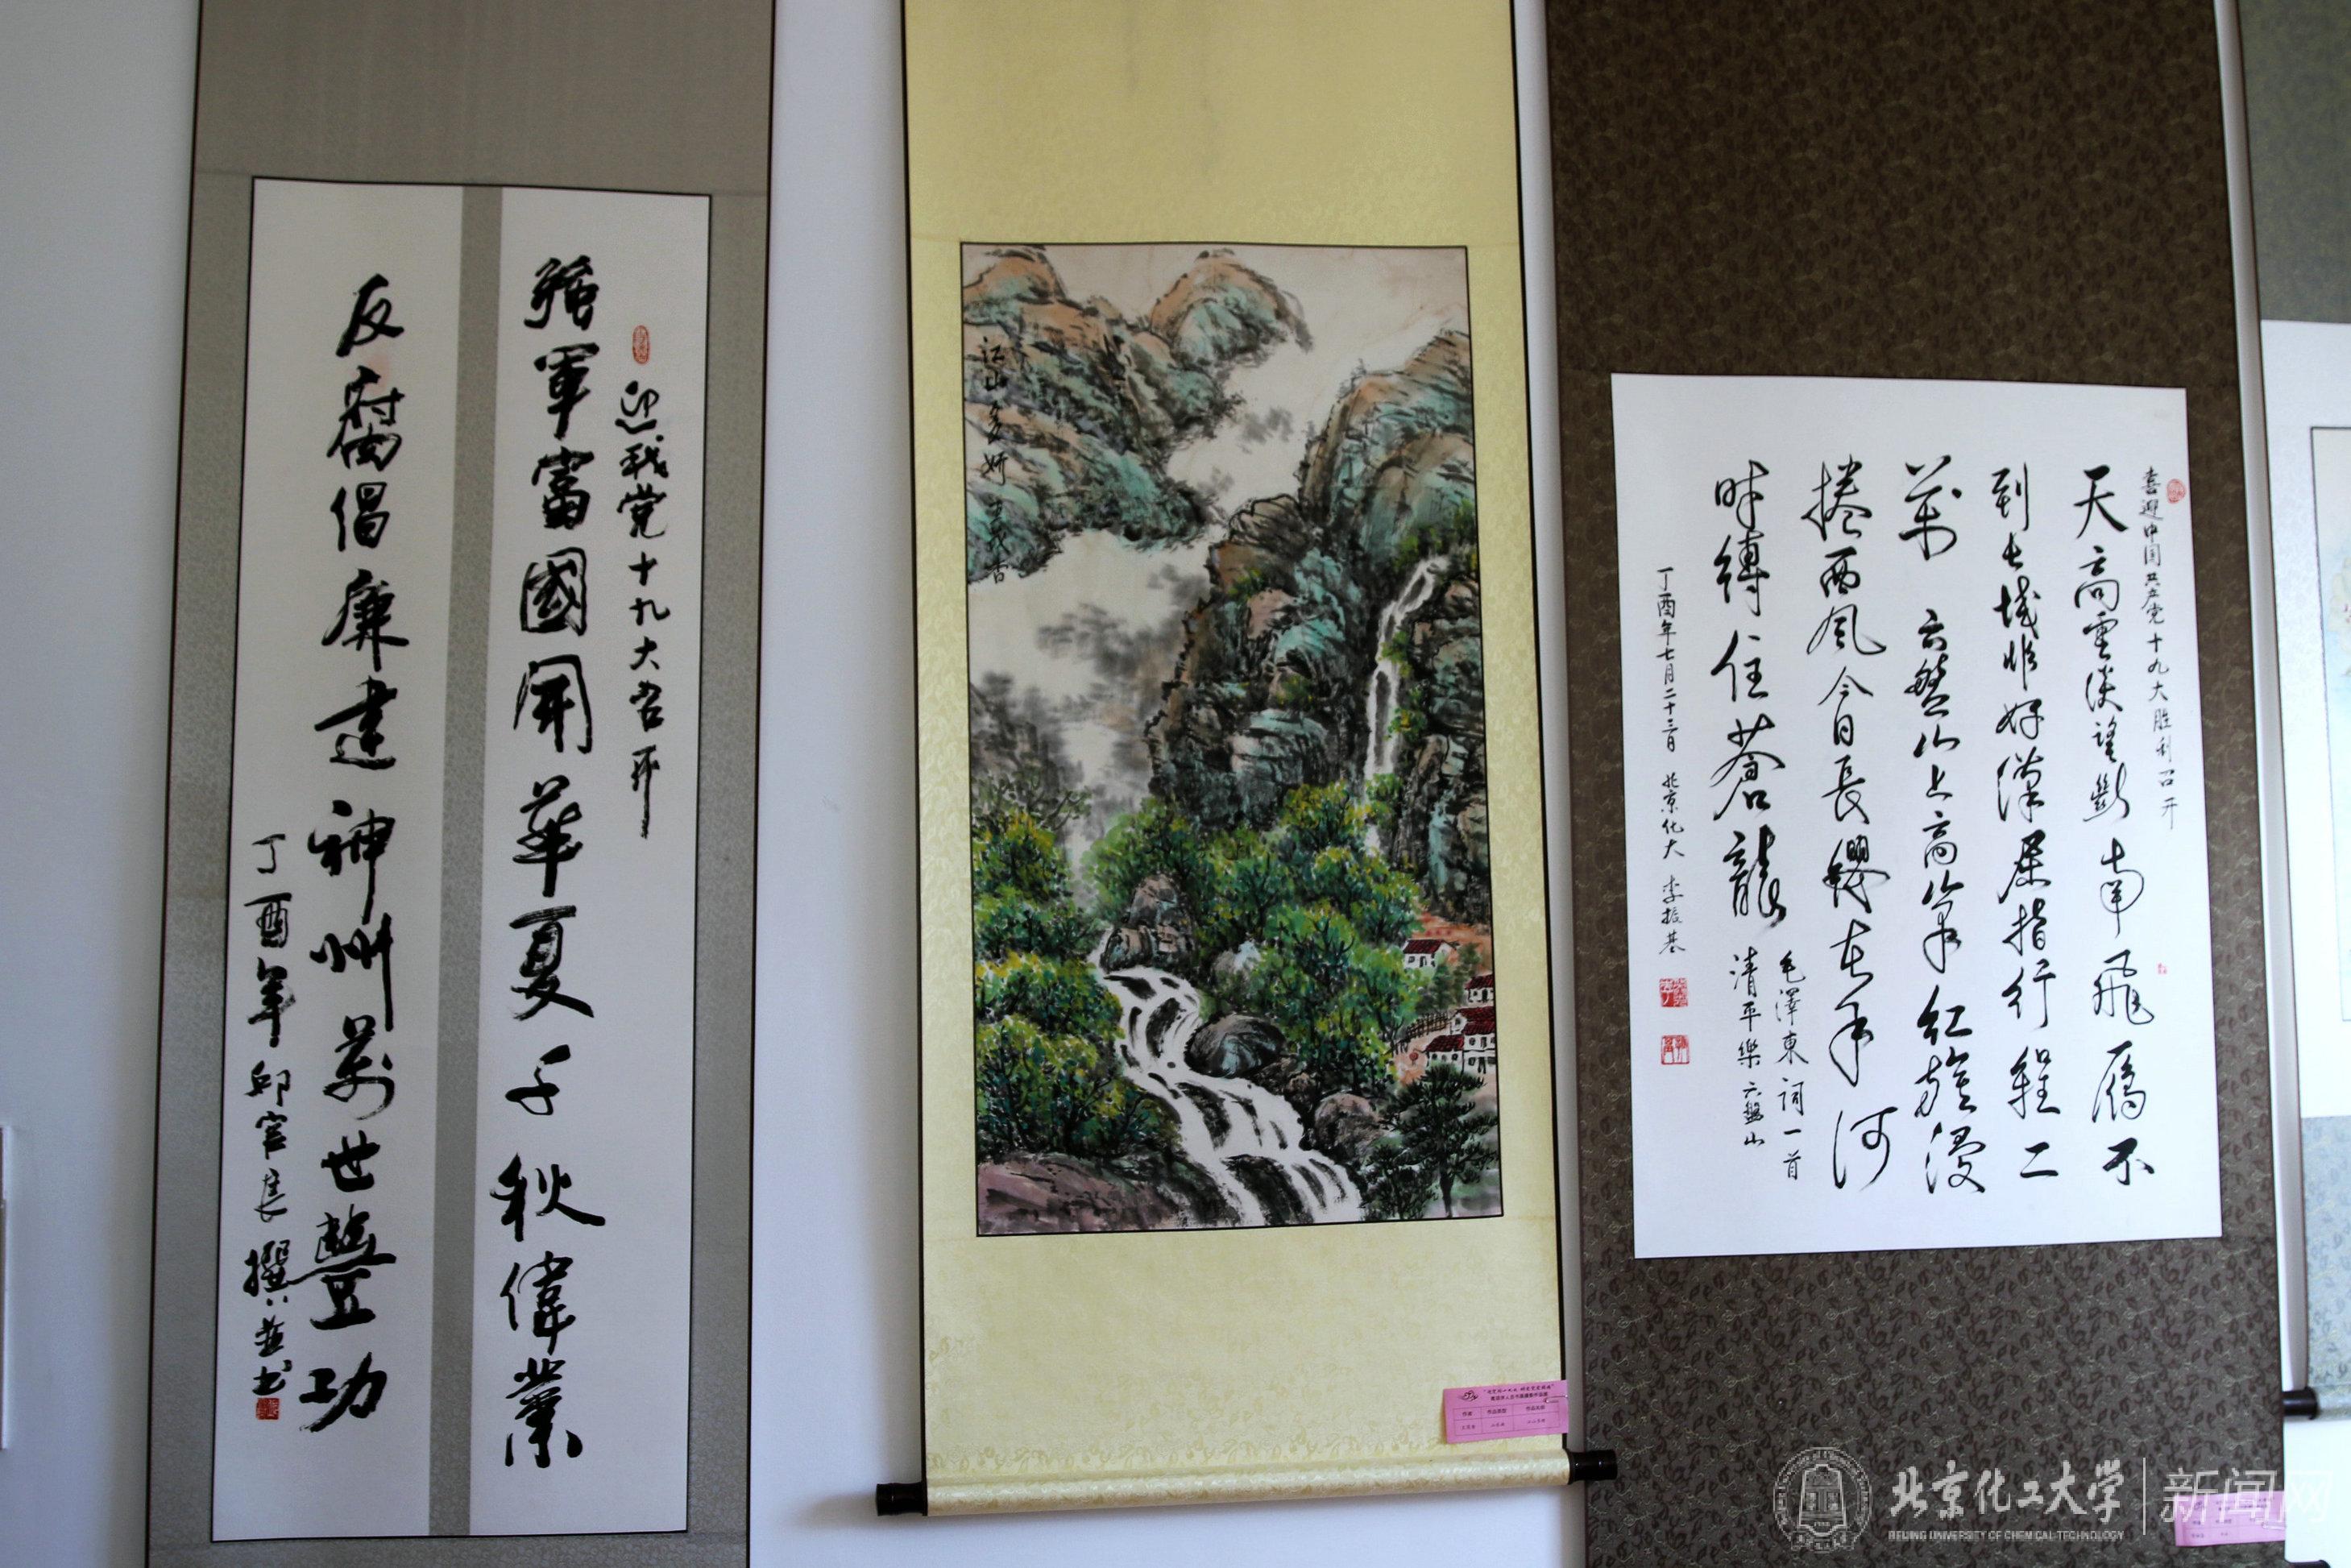 迎我党十九大召开
強軍富國開華夏千秋偉業
反腐倡廉建神州萬世豐功
丁酉年邱 長撰并书
江山多妍
喜迎中国共产党十九大胜利召开
天高雲淡望斷南飛雁不
到长城非好漢屈指行程二
萬 六盤山上高峰红旗漫
捲西風今日長纓在手何
時縛住蒼龍
毛澤東词一首
清平樂六盤山
丁酉年七月二十三日 北京化大 李振基
作者 作品类型 作品名称
北京化工大学 新闻网
BEIJING UNIVERSITY OF CHEMICAL TECHNOLOGY